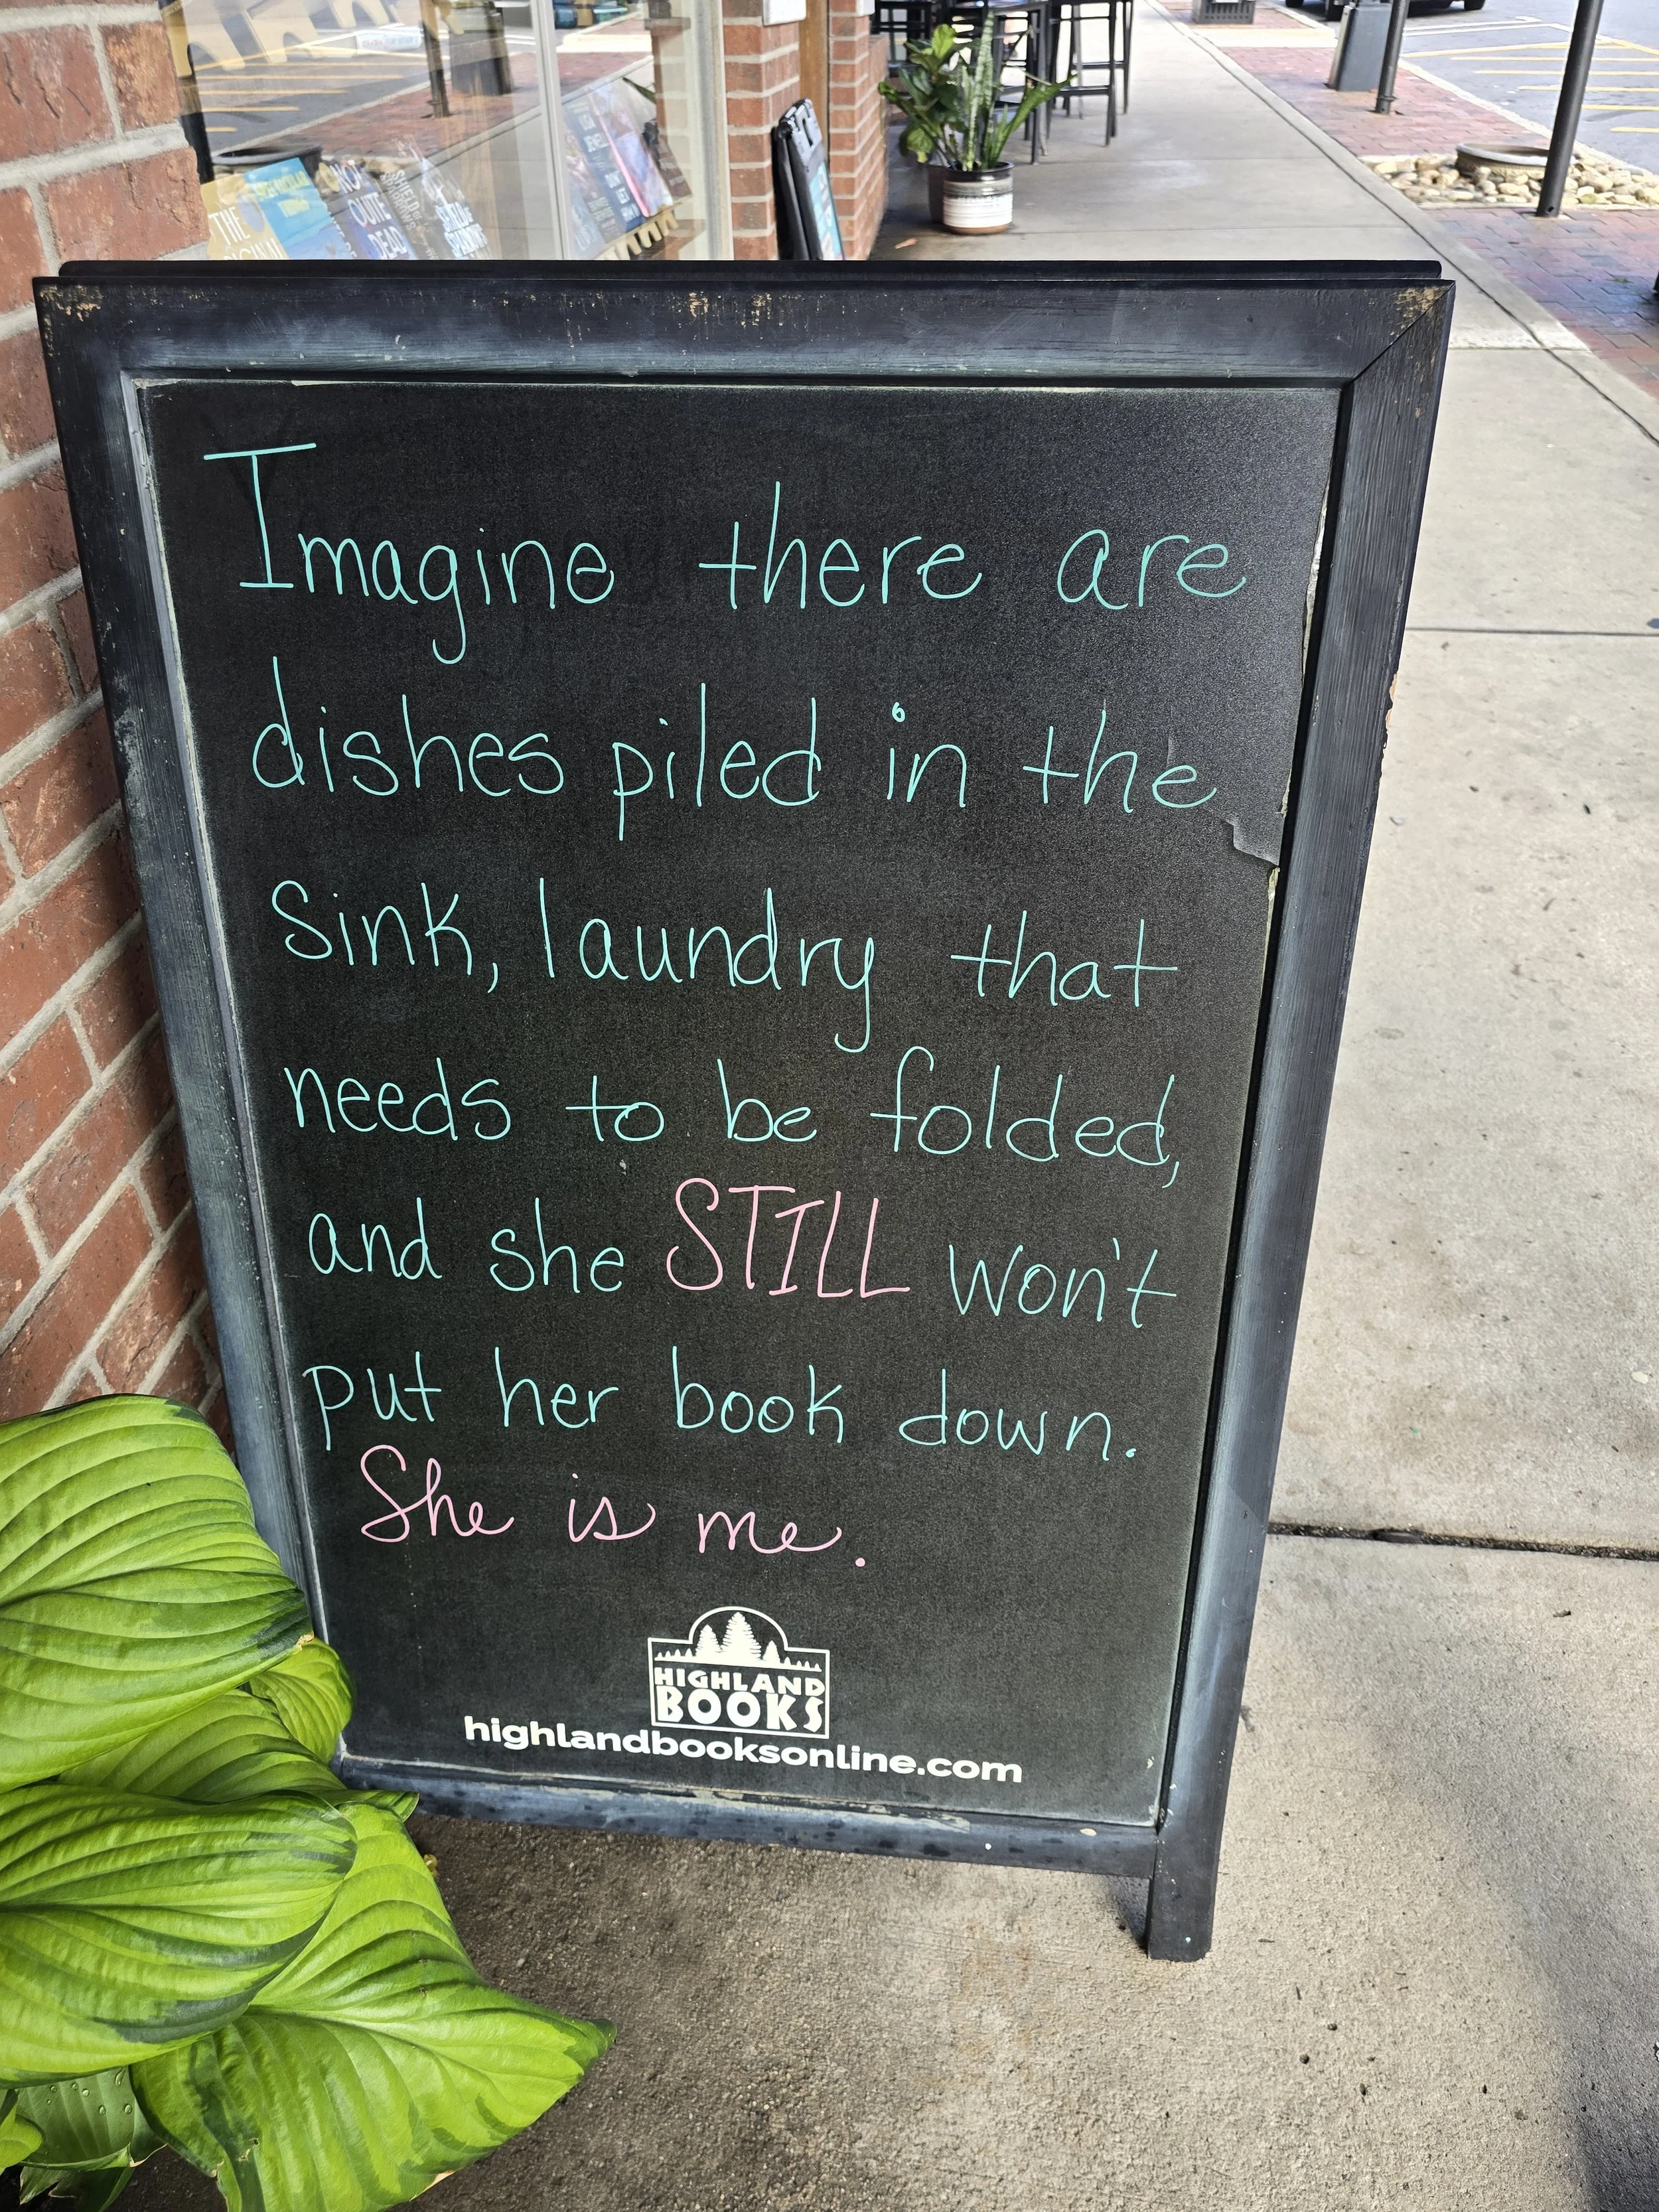 THE
NOT
QUITE
DEAD
Imagine there are
dishes piled in the
sink, laundry that
needs to be folded,
and she STILL won't
put her book down.
She is me.
HIGHLAND
BOOKS
highlandbooksonline.com